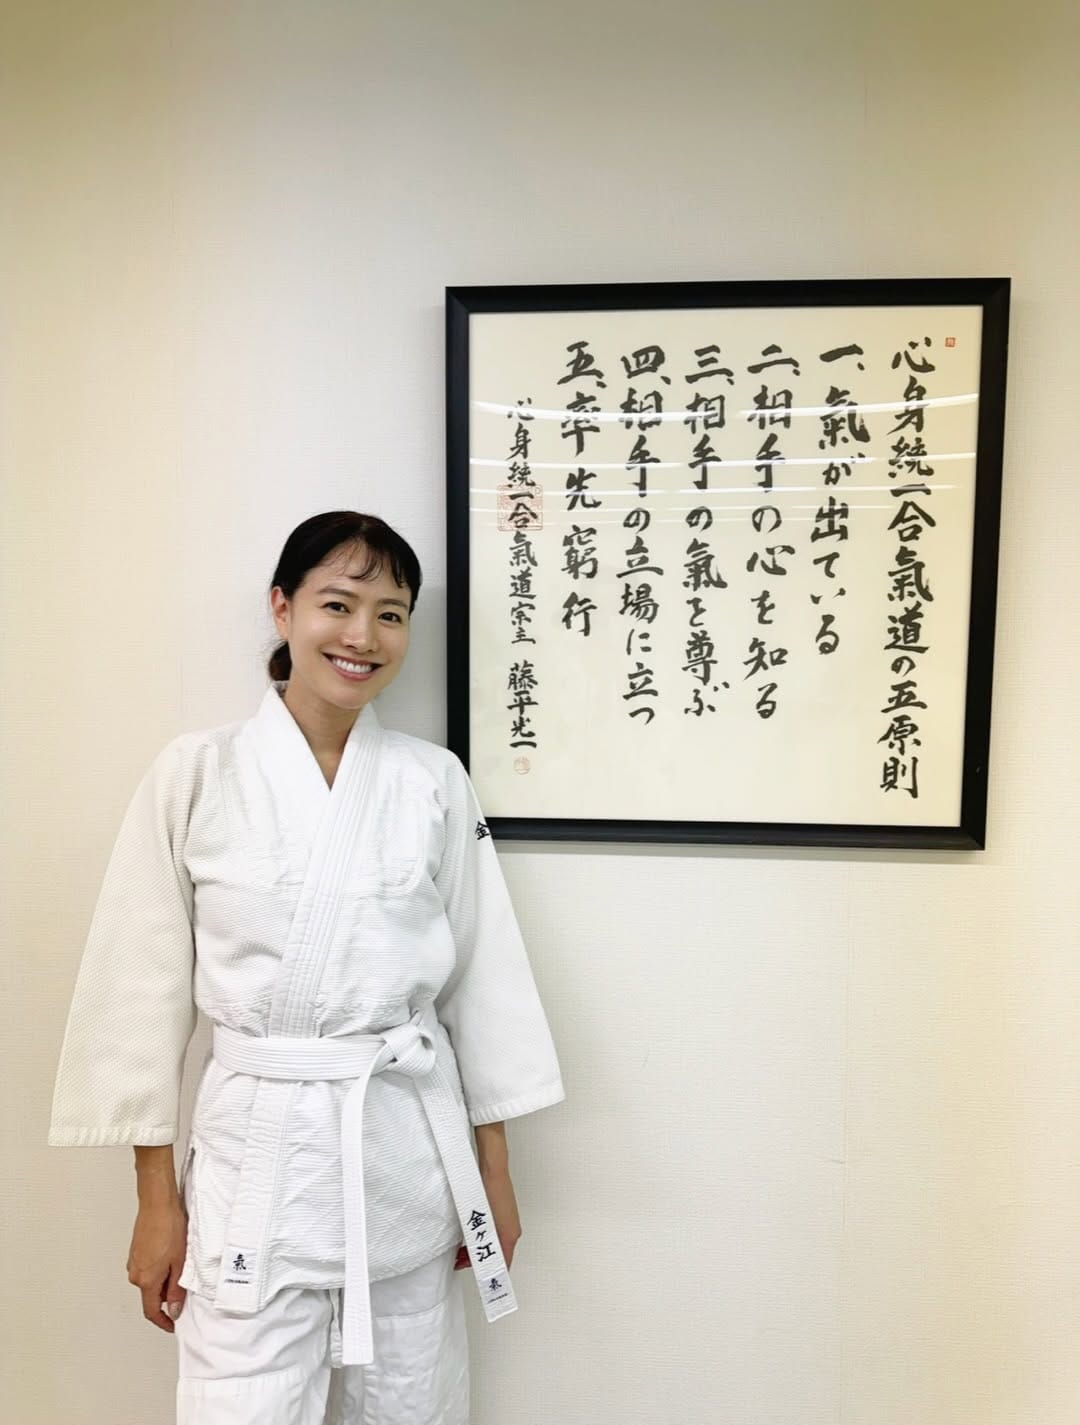 心身統一合氣道の五原則
一、氣が出ている
二、相手の心を知る
三、相手の氣を尊ぶ
四、相手の立場に立つ
五、率先窮行
心身統一合氣道宗主 藤平光一
金
金ヶ江
氣
氣